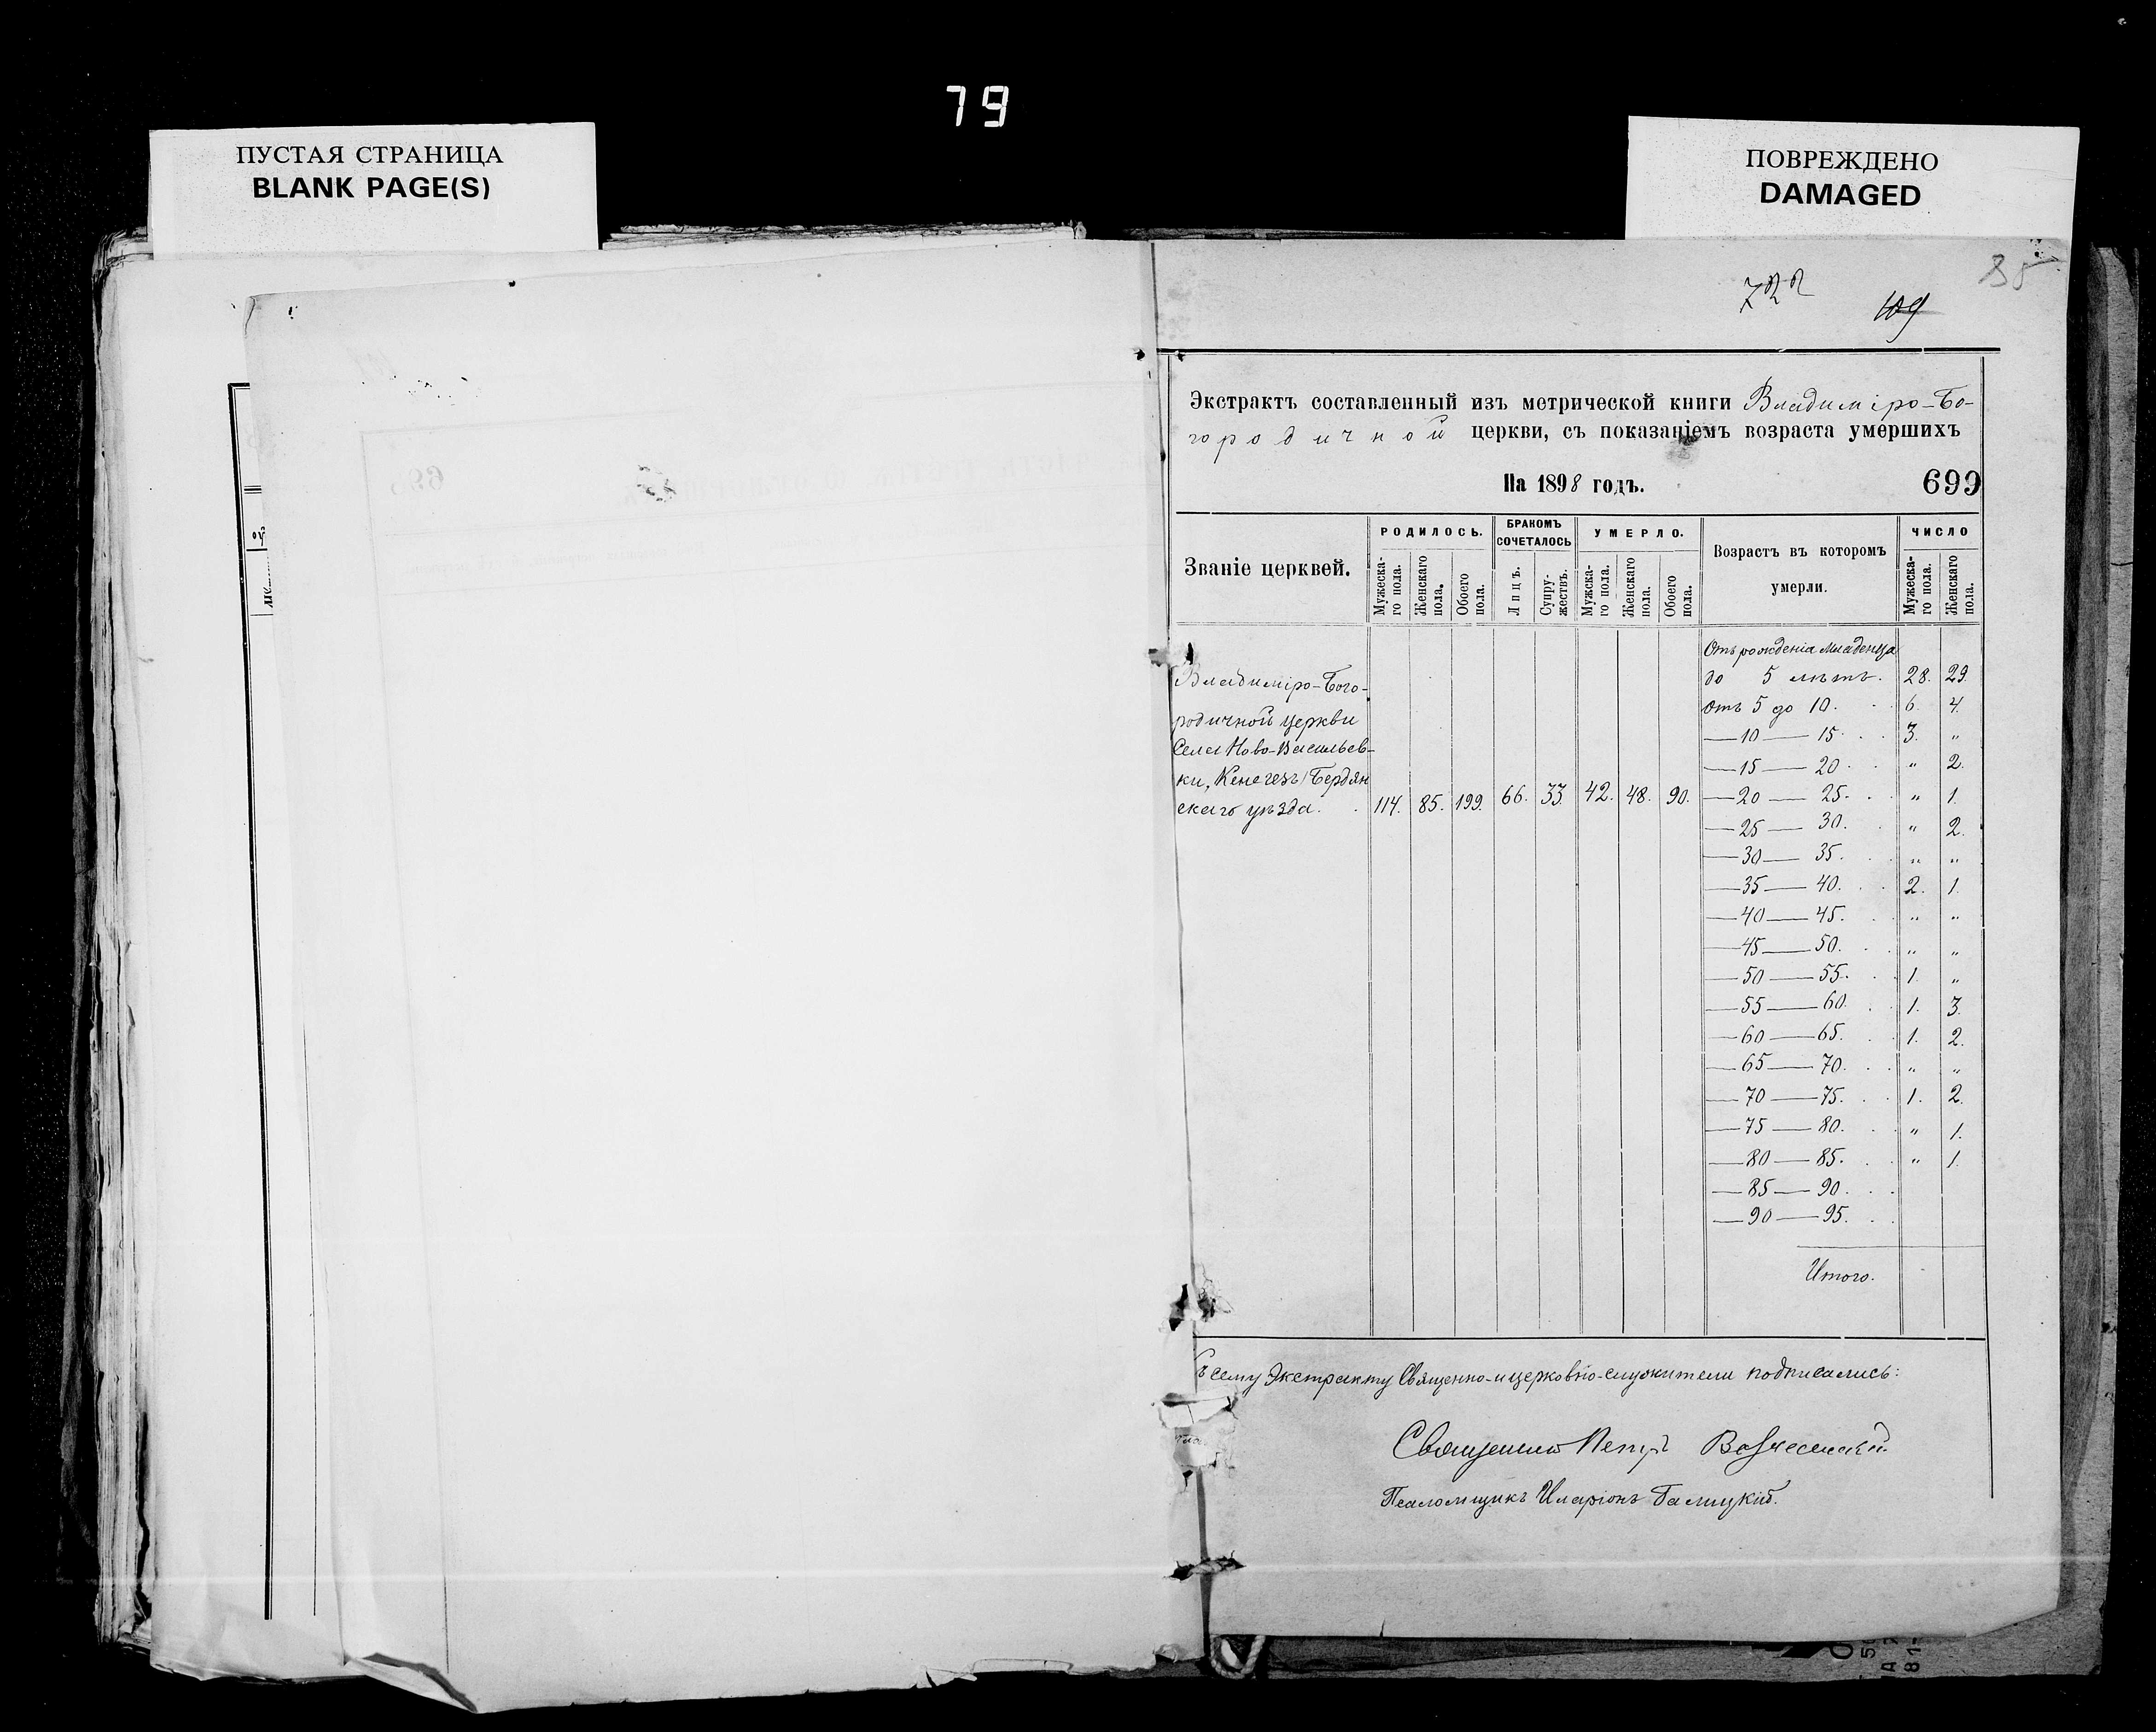 79
ПУСТАЯ СТРАНИЦА
BLANK PAGE(S)
ПОВРЕЖДЕНО
DAMAGED
722
109
Экстрактъ составленный изъ метрической книги Владиміро-Бо-
городичной церкви, съ показаніемъ возраста умершихъ
На 1898 годъ.
699
Званіе церквей.
РОДИЛОСЬ.
БРАКОМЪ СОЧЕТАЛОСЬ
УМЕРЛО.
Возрастъ въ которомъ умерли.
ЧИСЛО
Мужеска-го пола.
Женскаго пола.
Обоего пола.
Лицъ.
Супру-жествъ.
Мужска-го пола.
Женскаго пола.
Обоего пола.
Мужеска-го пола.
Женскаго пола.
Владиміро-Бого-
родичной церкви
Села Ново-Васильев-
ки, Кенегезъ, Бердян
скаго уѣзда. 114. 85. 199. 66. 33. 42. 48. 90.
Отъ рожденія младенца
до 5 лѣтъ. 28. 29.
Отъ 5 до 10. 6. 4.
— 10 — 15. 3. "
— 15 — 20. " 2.
— 20 — 25. " 1.
— 25 — 30. " 2.
— 30 — 35. " "
— 35 — 40. 2. 1.
— 40 — 45. " "
— 45 — 50. " "
— 50 — 55. 1. "
— 55 — 60. 1. 3.
— 60 — 65. 1. 2.
— 65 — 70. " "
— 70 — 75. 1. 2.
— 75 — 80. " 1.
— 80 — 85. " 1.
— 85 — 90.
— 90 — 95.
Итого.
сему Экстракту Священно-и церковно-служители подписались:
Священникъ Петръ Вознесенскій
Псаломщикъ Иларіонъ Галицкій.